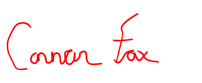 Connor Fox